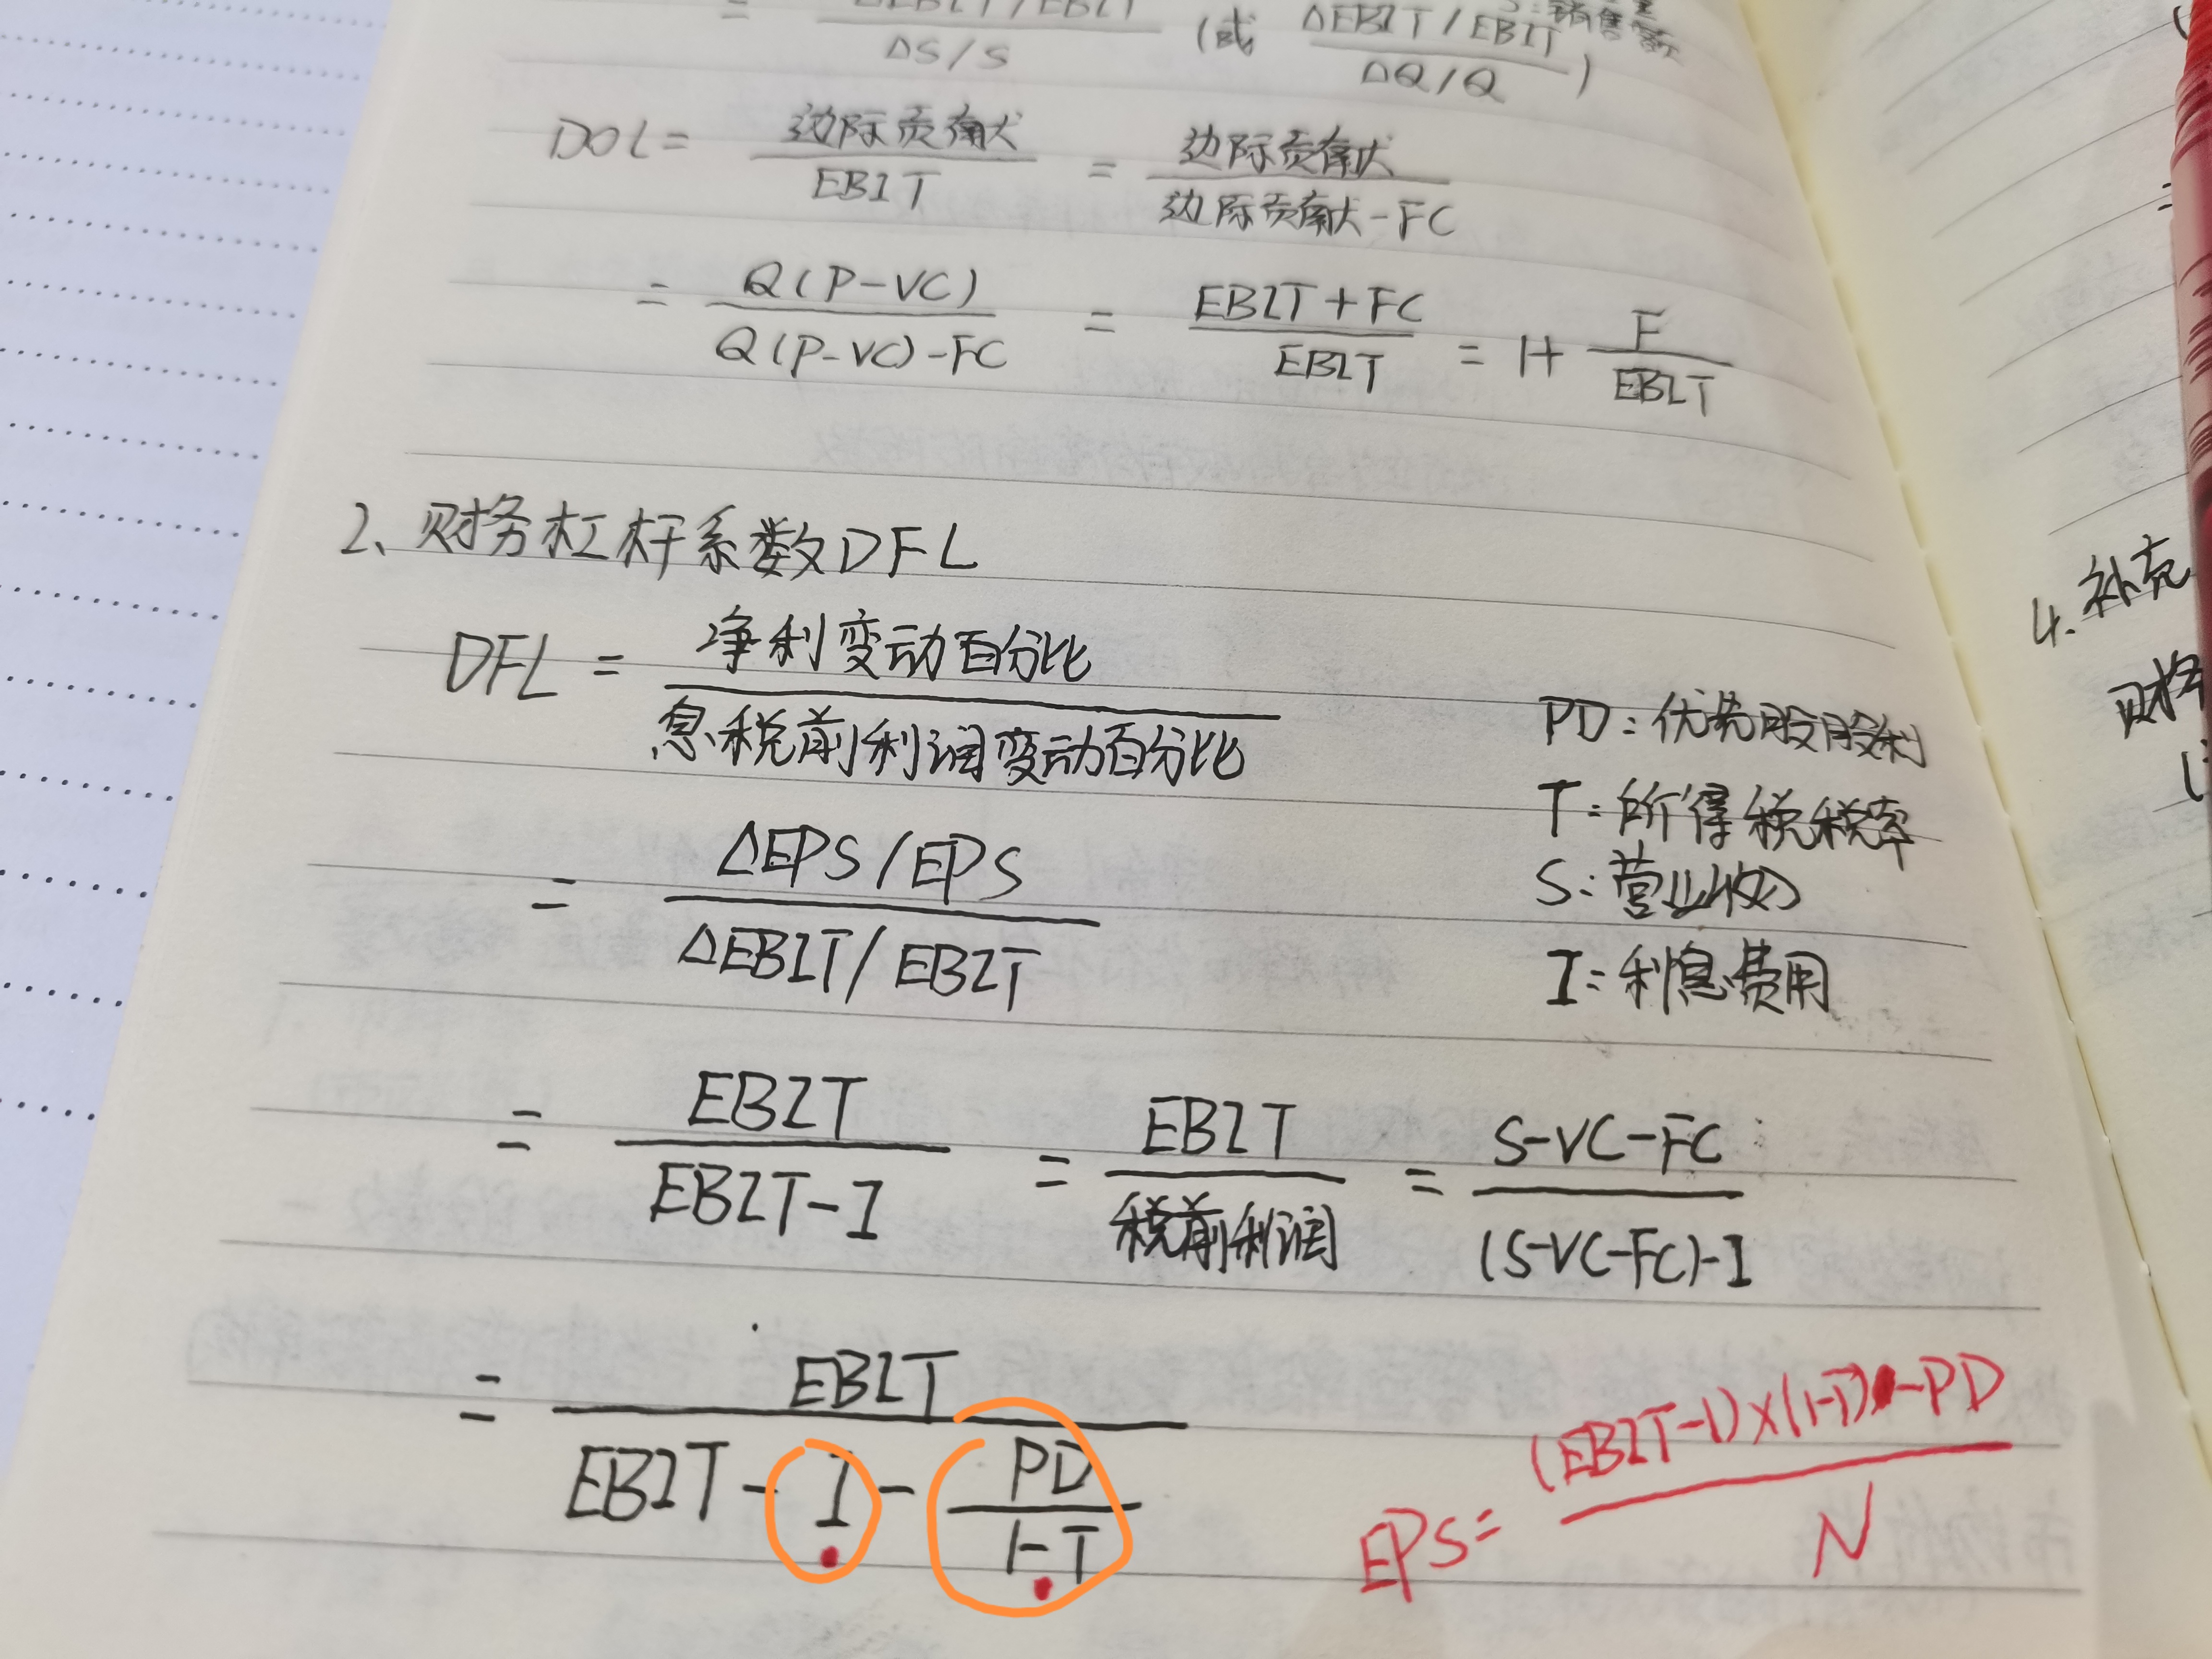 = ΔEBIT/EBIT / ΔS/S (或 ΔEBIT/EBIT / ΔQ/Q) 销售额
DOL = 边际贡献 / EBIT = 边际贡献 / 边际贡献-FC
= Q(P-VC) / Q(P-VC)-FC = EBIT+FC / EBIT = 1+ F / EBIT
2、财务杠杆系数DFL
DFL = 净利变动百分比 / 息税前利润变动百分比
PD: 优先股股利
T: 所得税税率
= ΔEPS/EPS / ΔEBIT/EBIT
S: 营业收入
I: 利息费用
= EBIT / EBIT-I = EBIT / 税前利润 = S-VC-FC / (S-VC-FC)-I
= EBIT / EBIT-I-PD/1-T
EPS= (EBIT-I)×(1-T)-PD / N
4.补充
财务